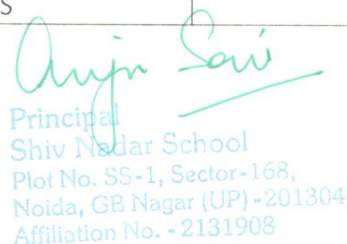 S
Principal
Shiv Nadar School
Plot No. SS-1, Sector-168,
Noida, GB Nagar (UP)-201304
Affiliation No. - 2131908